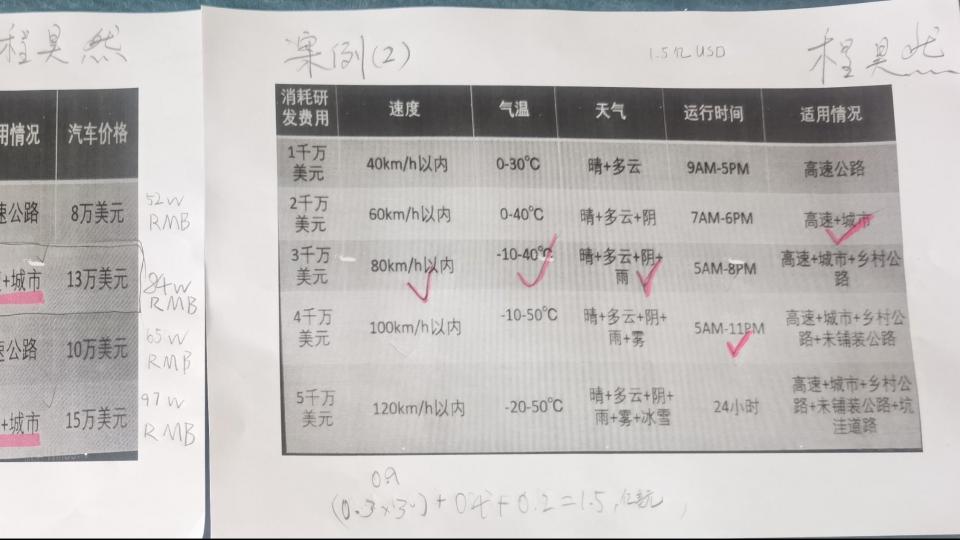 程昊然
用情况 汽车价格
速公路 8万美元 52W RMB
+城市 13万美元 84W RMB
速公路 10万美元 65W RMB
+城市 15万美元 97W RMB
案例(2) 1.5亿 USD 程昊然
消耗研发费用 速度 气温 天气 运行时间 适用情况
1千万美元 40km/h以内 0-30℃ 晴+多云 9AM-5PM 高速公路
2千万美元 60km/h以内 0-40℃ 晴+多云+阴 7AM-6PM 高速+城市
3千万美元 80km/h以内 -10-40℃ 晴+多云+阴+雨 5AM-8PM 高速+城市+乡村公路
4千万美元 100km/h以内 -10-50℃ 晴+多云+阴+雨+雾 5AM-11PM 高速+城市+乡村公路+未铺装公路
5千万美元 120km/h以内 -20-50℃ 晴+多云+阴+雨+雾+冰雪 24小时 高速+城市+乡村公路+未铺装公路+坑洼道路
0.9
(0.3×3)+0.4+0.2=1.5亿美元